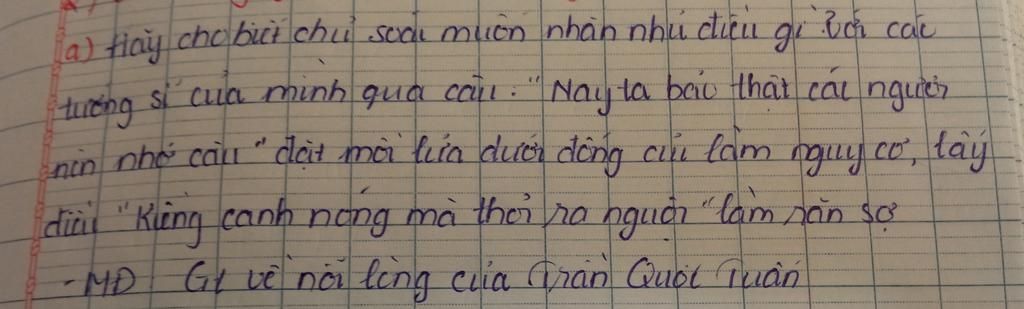 a) Hãy cho biết chủ soái muốn nhắn nhủ điều gì với các
tướng sĩ của mình qua câu: "Nay ta bảo thật các ngươi
nên nhớ câu "đặt mồi lửa dưới đống củi làm nguy cơ, lấy
điều "Kiềng canh nóng mà thổi ra nguội" làm răn sợ
- MĐ GT về nỗi lòng của Trần Quốc Tuấn